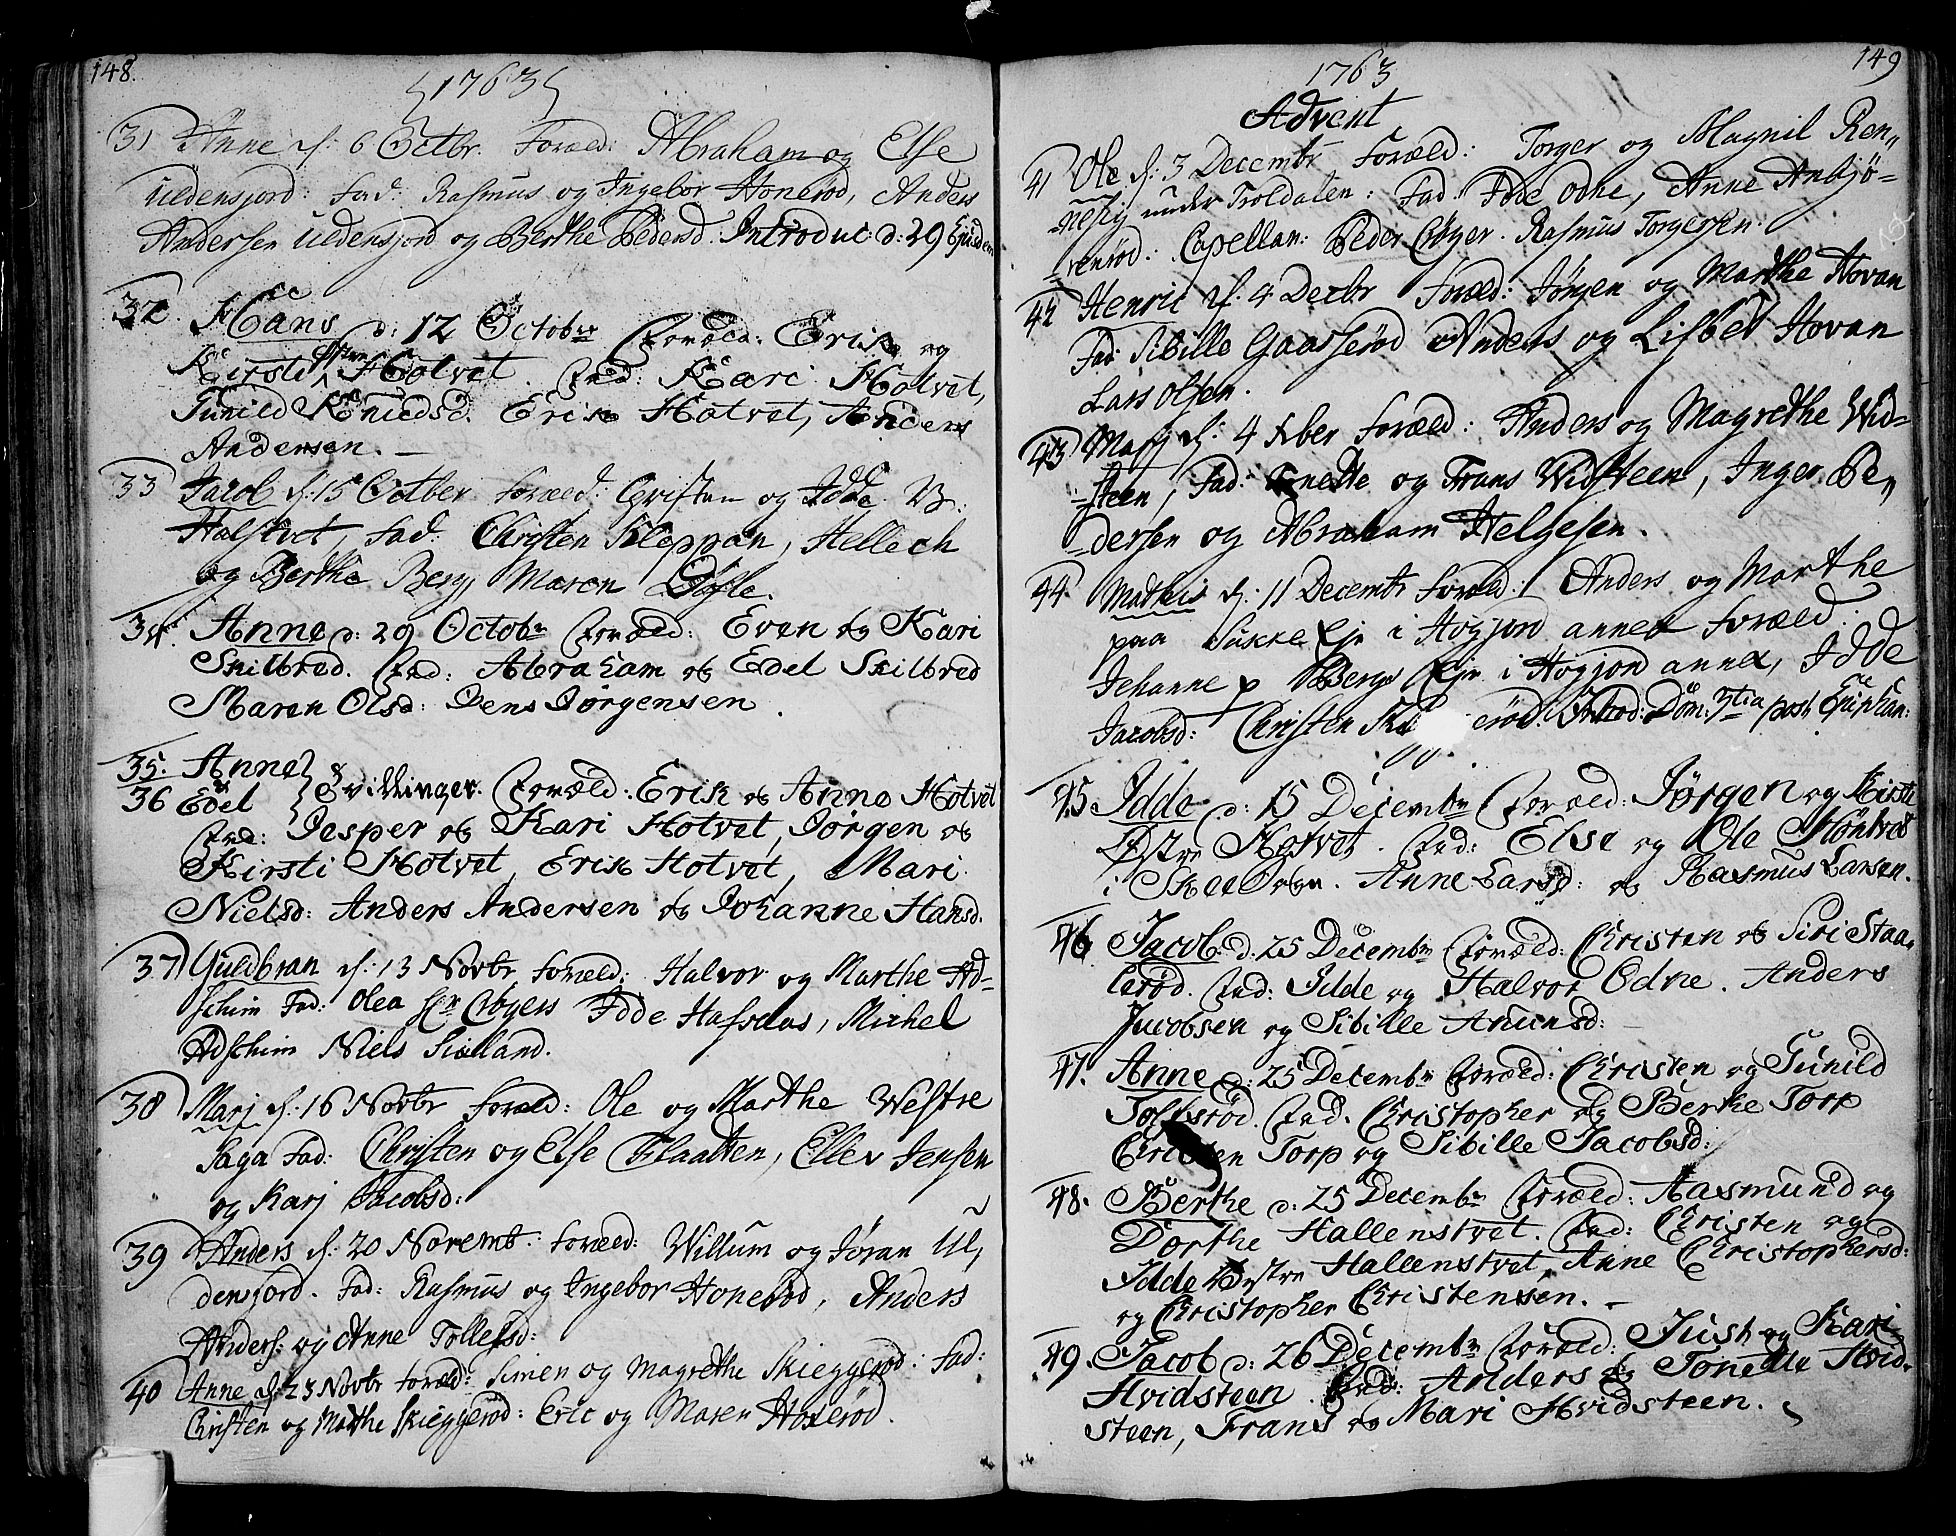 148.
1763
31 Anne d: 6 Octbr. Foræld: Abraham og Else
Uldensjord: Fad: Rasmus og Ingebor Honerød, Anders
Andersen Uldensjord og Berthe Pedersd. Introduc: d: 29 Ejusdem
32. Hans d: 12 Octobr Foræld: Erik og
Kirsti Østre Holvet. Fad: Kari Holvet,
Gunild Knudsd. Erik Hotvet, Anders
Andersen. —
33 Jacob d: 15 Octber foræld: Christen og Idde V:
Halstvet, Fad: Christen Kleppan, Hellech
og Berthe Berg, Maren
34. Anne d: 29 Octobr Foræld: Even og Kari
Skilbred. Fad: Abraham og Edel Skilbred
Maren Olsd: Jens Jørgensen.
35. Anne
36 Edel Tvillinger. Foræld: Erik og Anne Hotvet
Fad: Jesper og Kari Hotvet, Jørgen og
Kirsti Hotvet, Erik Hotvet, Mari
Nielsd: Anders Andersen og Johanne Hansd.
37 Guldbran d: 13 Novbr foræld: Halvor og Marthe Ad-
schim Fad: Olea Sr Crøyers Idde Hafsdas, Michel
Adschim Niels Siælland.
38 Marj d: 16 Novbr foræld: Ole og Marthe Westre
Saga Fad: Christen og Else Flaatten, Ellev Jensen
og Karj Jacobsd:
39 Anders d: 20 Novemb: foræld: Willum og Jøran Ul,
densjord. Fad: Rasmus og Ingebor Honerød, Anders
Anders: og Anne Tollefsd:
40 Anne d: 23 Novbr foræld: Simen og Magrethe Skieggerød: Fad:
Christen og Marthe Skieggerød: Eric og Maren Honerød.
149
1763
Advent
41 Ole d: 3 Decembr Foræld: Torger og Magnil Ren,
nesig under Troldalen: Fad: Idde Odne, Anne Anbjø-
rnrød: Capellan: Peder Crøyer. Rasmus Torgersen.
42 Henric d: 4 Decbr Foræld: Jørgen og Marthe Hovan
Fad: Sibille Gaasserød Anders og Lisbet Hovan
Lars Olsen.
43 Marj d: 4 Xber foræld: Anders og Magrethe Wid-
steen, Fad: Tonette og Frans Widsteen, Inger Pe,
dersen og Abraham Helgesen.
44 Mathis d: 11 Decembr foræld: Anders og Marthe
paa Sukke Eje i Høgjord annex foræld:
Jehanne p Berge Eje i Høgjord annex, Idde
Jacobsd: Christen erød. Introd: Dom: 3tia post Epiphan:
45. Idde d: 15 Decembr Foræld: Jørgen og Kirsti
Østre Hotvet. Fad: Else og Ole Høntvet
i Skee Sogn. Anne Larsd: og Rasmus Larsen.
46 Jacob: d: 25 Decembr Foræld: Christen og Siri Staa-
lerød. Fad: Idde og Halvor Odne. Anders
Jacobsen og Sibille Amunsd:
47. Anne d: 25 Decembr Foræld: Christen og Gunild
Tolfsrød. Fad. Christopher og Berthe Torp
Christen Torp og Sibille Jacobsd:
48. Berthe d: 25 Decembr Foræld: Aasmund og
Dorthe Hallenstvet. Fad: Christen og
Idde Østre Hallenstvet, Anne Christophersd:
og Christopher Christensen. —
49. Jacob d: 26 Decembr Foræld: Just og Kari
Hvidsteen. Fad: Anders og Tonette Hvid-
steen, Frans og Mari Hvidsteen.